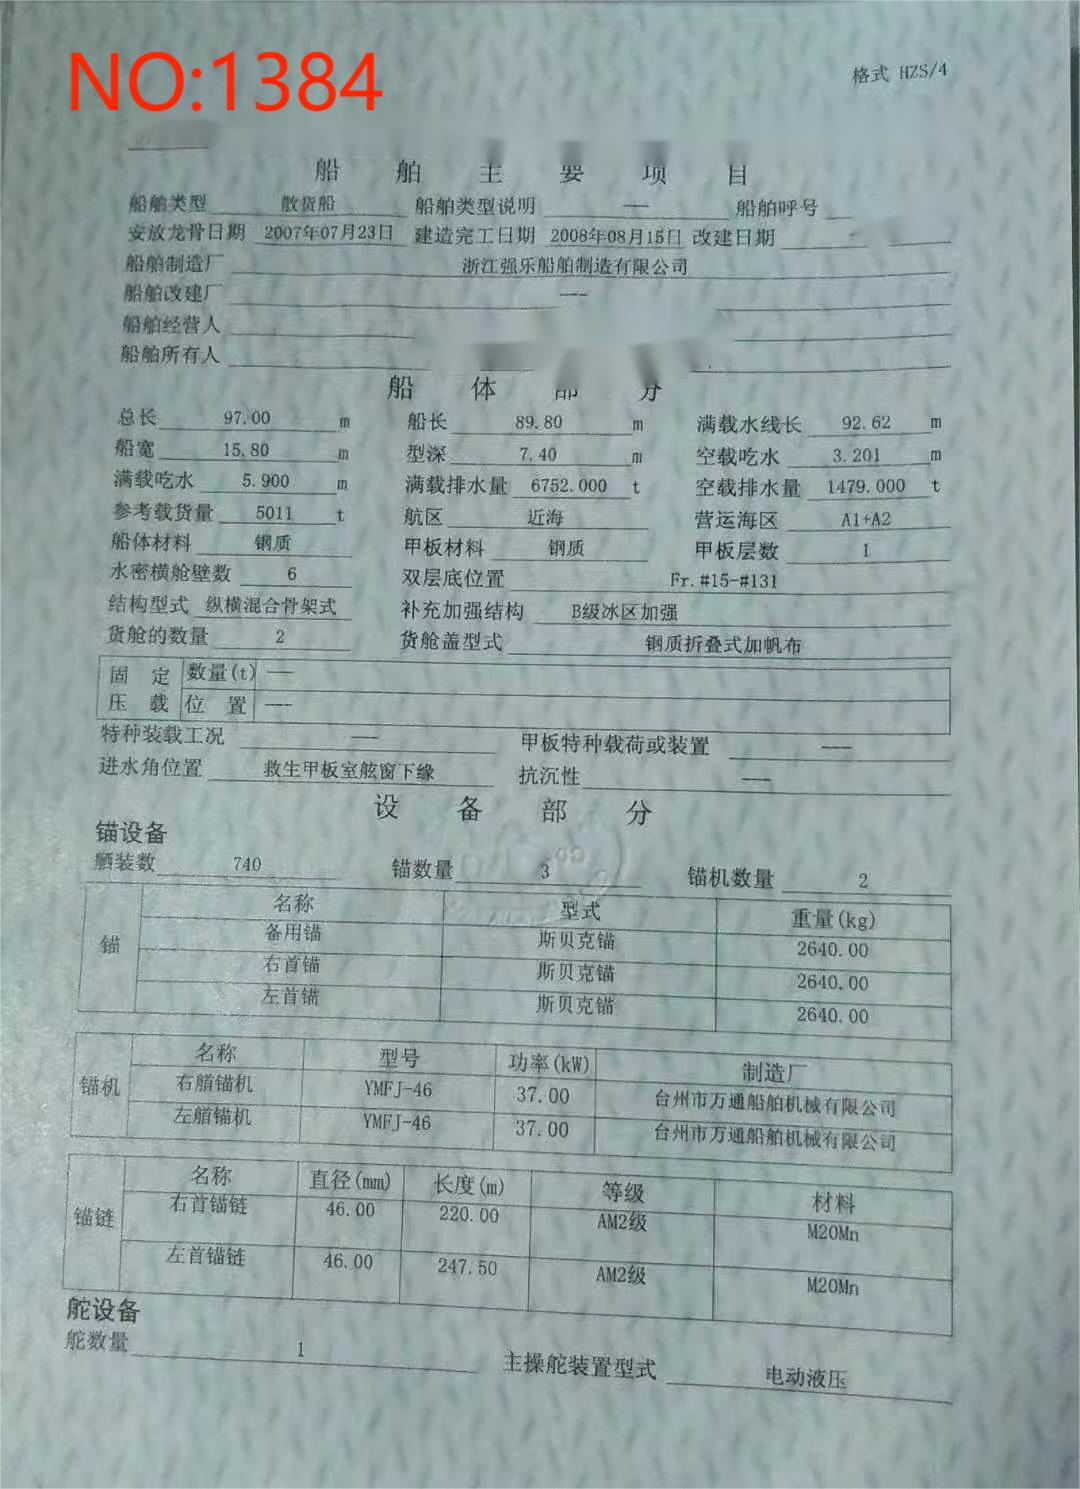 NO:1384
格式 HZS/4
船 舶 主 要 项 目
船舶类型 散货船 船舶类型说明 --- 船舶呼号
安放龙骨日期 2007年07月23日 建造完工日期 2008年08月15日 改建日期 -
船舶制造厂 浙江强乐船舶制造有限公司
船舶改建厂 ---
船舶经营人
船舶所有人
船 体 部 分
总长 97.00 m 船长 89.80 m 满载水线长 92.62 m
船宽 15.80 m 型深 7.40 m 空载吃水 3.201 m
满载吃水 5.900 m 满载排水量 6752.000 t 空载排水量 1479.000 t
参考载货量 5011 t 航区 近海 营运海区 A1+A2
船体材料 钢质 甲板材料 钢质 甲板层数 1
水密横舱壁数 6 双层底位置 Fr.#15-#131
结构型式 纵横混合骨架式 补充加强结构 B级冰区加强
货舱的数量 2 货舱盖型式 钢质折叠式加帆布
固 定 数量(t) ---
压 载 位 置 ---
特种装载工况 --- 甲板特种载荷或装置 ---
进水角位置 救生甲板室舷窗下缘 抗沉性 ---
设 备 部 分
锚设备
舾装数 740 锚数量 3 锚机数量 2
名称 型式 重量(kg)
锚
备用锚 斯贝克锚 2640.00
右首锚 斯贝克锚 2640.00
左首锚 斯贝克锚 2640.00
名称 型号 功率(kW) 制造厂
锚机
右艏锚机 YMFJ-46 37.00 台州市万通船舶机械有限公司
左艏锚机 YMFJ-46 37.00 台州市万通船舶机械有限公司
名称 直径(mm) 长度(m) 等级 材料
锚链
右首锚链 46.00 220.00 AM2级 M20Mn
左首锚链 46.00 247.50 AM2级 M20Mn
舵设备
舵数量 1 主操舵装置型式 电动液压